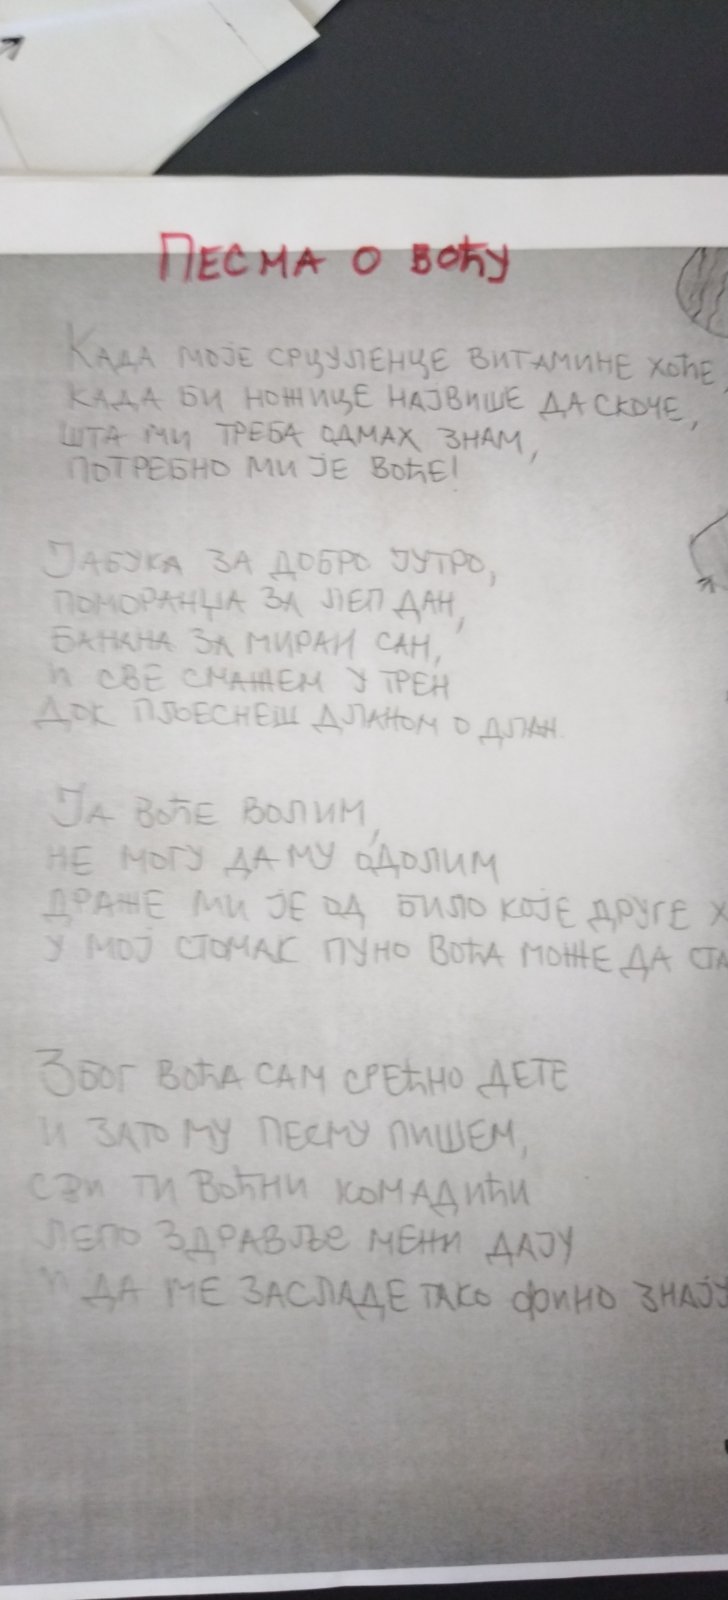 ПЕСМА О ВОЋУ
КАДА МОЈЕ СРЦУЛЕНЦЕ ВИТАМИНЕ ХОЋЕ,
КАДА БИ НОЖИЦЕ НАЈВИШЕ ДА СКОЧЕ,
ШТА МИ ТРЕБА ОДМАХ ЗНАМ,
ПОТРЕБНО МИ ЈЕ ВОЋЕ!
ЈАБУКА ЗА ДОБРО ЈУТРО,
ПОМОРАНЏА ЗА ЛЕП ДАН,
БАНАНА ЗА МИРАН САН,
И СВЕ СМАЖЕМ У ТРЕН
ДОК ПЉЕСНЕШ ДЛАНОМ О ДЛАН.
ЈА ВОЋЕ ВОЛИМ,
НЕ МОГУ ДА МУ ОДОЛИМ
ДРАЖЕ МИ ЈЕ ОД БИЛО КОЈЕ ДРУГЕ
У МОЈ СТОМАК ПУНО ВОЋА МОЖЕ ДА
ЗБОГ ВОЋА САМ СРЕЋНО ДЕТЕ
И ЗАТО МУ ПЕСМУ ПИШЕМ,
СВИ ТИ ВОЋНИ КОМАДИЋИ
ЛЕПО ЗДРАВЉЕ МЕНИ ДАЈУ
И ДА МЕ ЗАСЛАДЕ ТАКО ФИНО ЗНАЈУ